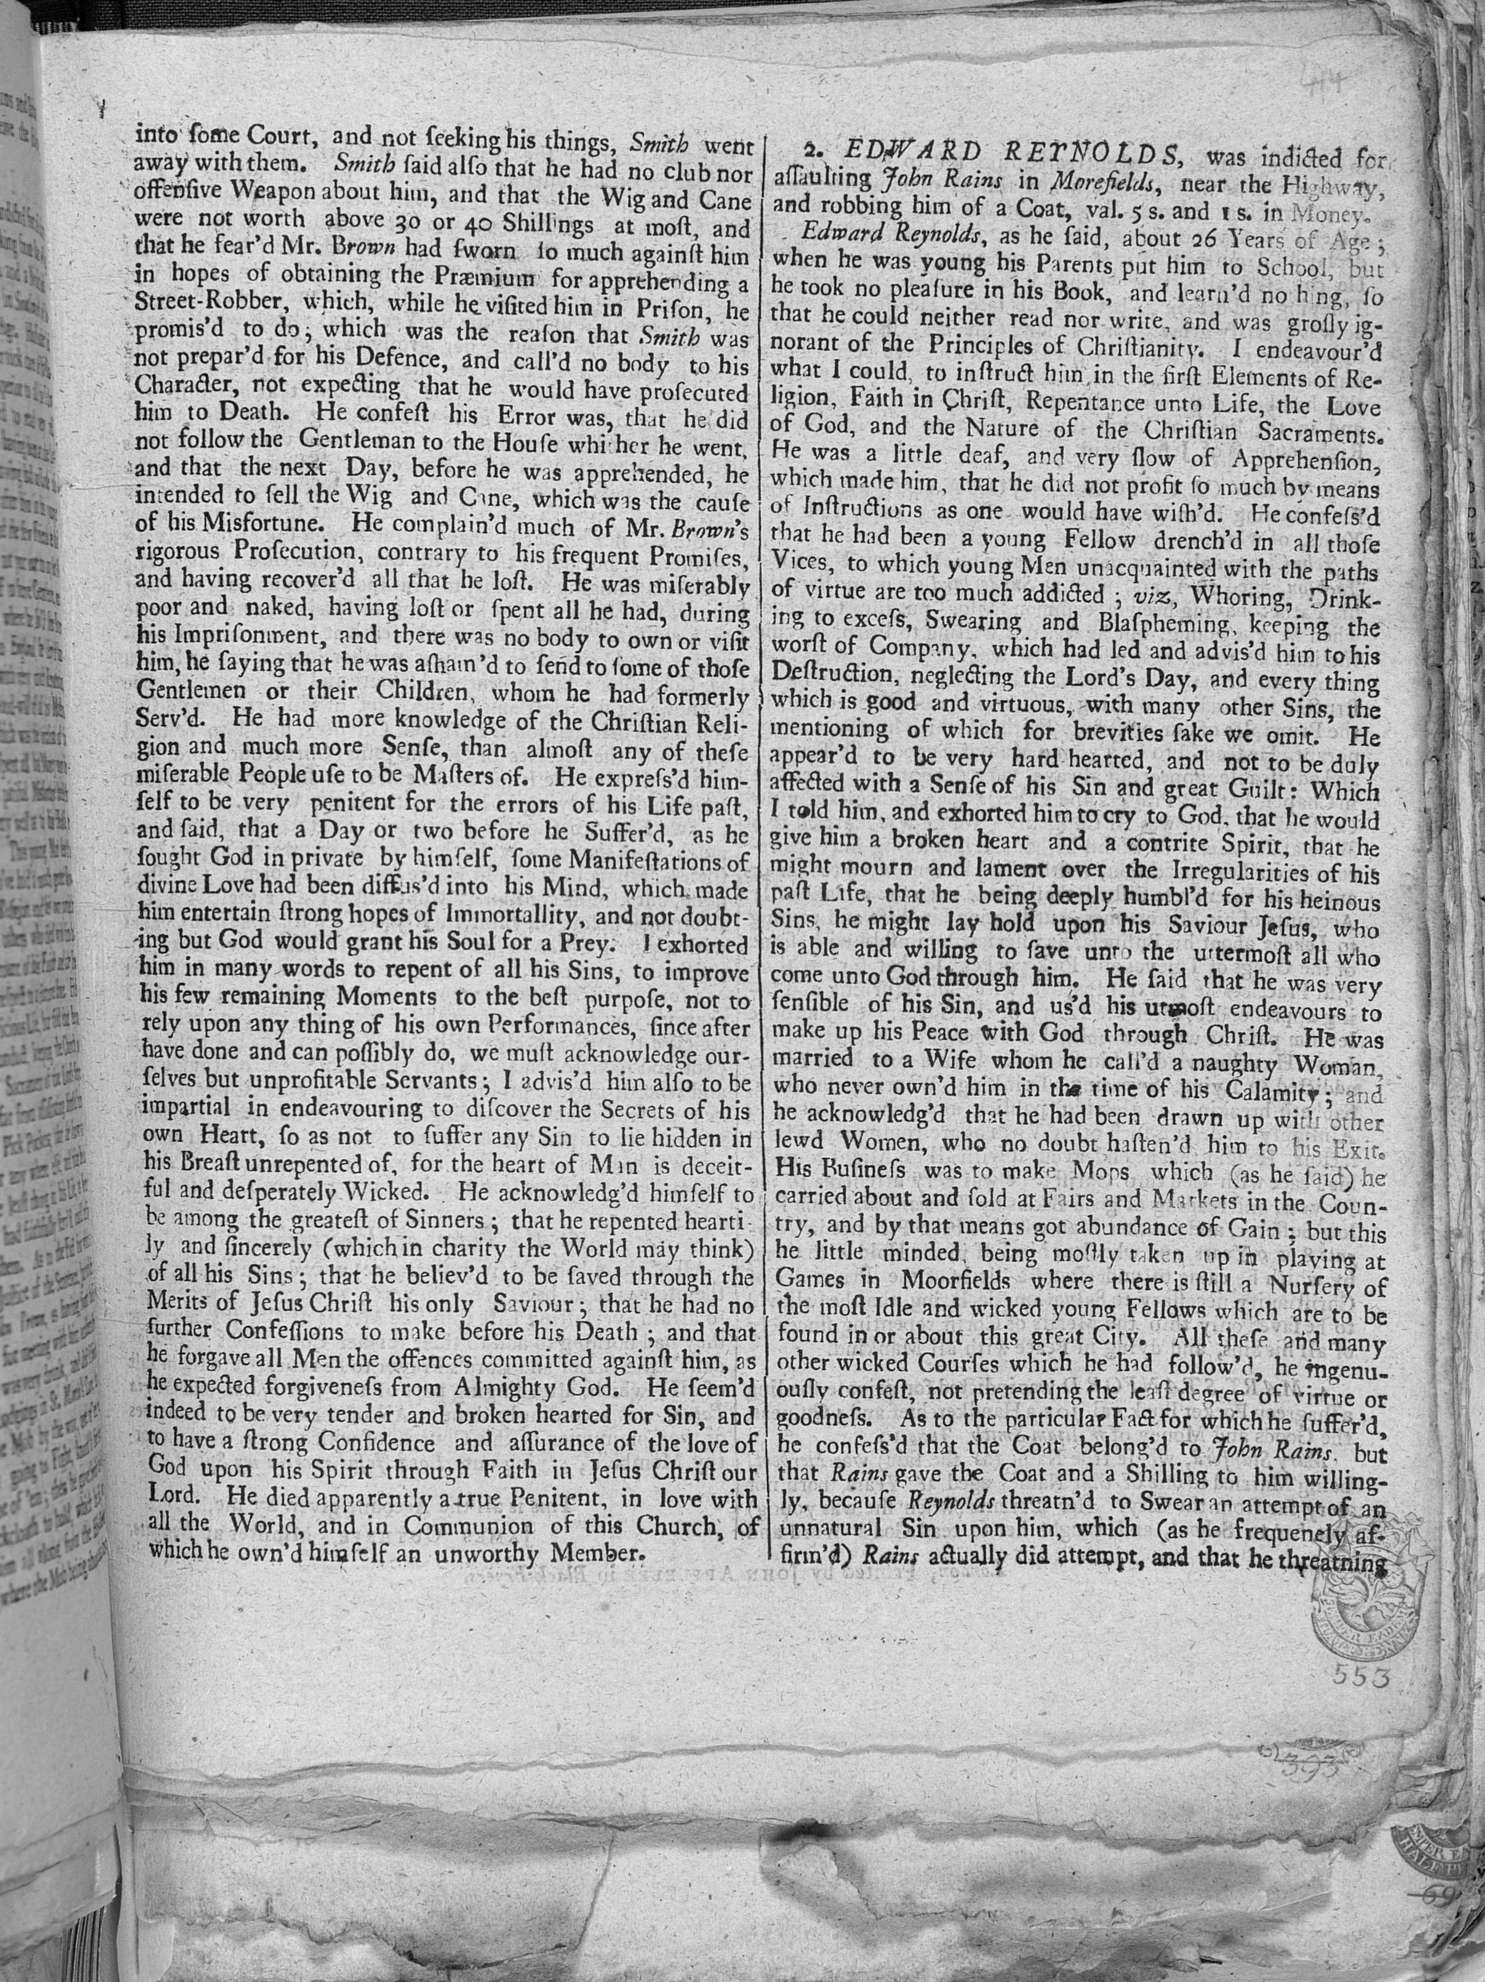 into ſome Court, and not ſeeking his things, Smith went
away with them. Smith ſaid alſo that he had no club nor
offenſive Weapon about him, and that the Wig and Cane
were not worth above 30 or 40 Shillings at moſt, and
that he fear'd Mr. Brown had ſworn ſo much againſt him
in hopes of obtaining the Præmium for apprehending a
Street-Robber, which, while he viſited him in Priſon, he
promis'd to do; which was the reaſon that Smith was
not prepar'd for his Defence, and call'd no body to his
Character, not expecting that he would have proſecuted
him to Death. He confeſt his Error was, that he did
not follow the Gentleman to the Houſe whither he went,
and that the next Day, before he was apprehended, he
intended to ſell the Wig and Cane, which was the cauſe
of his Misfortune. He complain'd much of Mr. Brown's
rigorous Proſecution, contrary to his frequent Promiſes,
and having recover'd all that he loſt. He was miſerably
poor and naked, having loſt or ſpent all he had, during
his Impriſonment, and there was no body to own or viſit
him, he ſaying that he was aſham'd to ſend to ſome of thoſe
Gentlemen or their Children, whom he had formerly
Serv'd. He had more knowledge of the Chriſtian Reli-
gion and much more Senſe, than almoſt any of theſe
miſerable People uſe to be Maſters of. He expreſs'd him-
ſelf to be very penitent for the errors of his Life paſt,
and ſaid, that a Day or two before he Suffer'd, as he
ſought God in private by himſelf, ſome Manifeſtations of
divine Love had been diffus'd into his Mind, which made
him entertain ſtrong hopes of Immortallity, and not doubt-
ing but God would grant his Soul for a Prey. I exhorted
him in many words to repent of all his Sins, to improve
his few remaining Moments to the beſt purpoſe, not to
rely upon any thing of his own Performances, ſince after
have done and can poſſibly do, we muſt acknowledge our-
ſelves but unprofitable Servants; I advis'd him alſo to be
impartial in endeavouring to diſcover the Secrets of his
own Heart, ſo as not to ſuffer any Sin to lie hidden in
his Breaſt unrepented of, for the heart of Man is deceit-
ful and deſperately Wicked. He acknowledg'd himſelf to
be among the greateſt of Sinners; that he repented hearti-
ly and ſincerely (which in charity the World may think)
of all his Sins; that he believ'd to be ſaved through the
Merits of Jeſus Chriſt his only Saviour; that he had no
further Confeſſions to make before his Death; and that
he forgave all Men the offences committed againſt him, as
he expected forgiveneſs from Almighty God. He ſeem'd
indeed to be very tender and broken hearted for Sin, and
to have a ſtrong Confidence and aſſurance of the love of
God upon his Spirit through Faith in Jeſus Chriſt our
Lord. He died apparently a true Penitent, in love with
all the World, and in Communion of this Church, of
which he own'd himſelf an unworthy Member.
2. EDWARD REYNOLDS, was indicted for
aſſaulting John Rains in Morefields, near the Highway,
and robbing him of a Coat, val. 5 s. and 1 s. in Money.
Edward Reynolds, as he ſaid, about 26 Years of Age;
when he was young his Parents put him to School, but
he took no pleaſure in his Book, and learn'd no hing, ſo
that he could neither read nor write, and was groſly ig-
norant of the Principles of Chriſtianity. I endeavour'd
what I could, to inſtruct him in the firſt Elements of Re-
ligion, Faith in Chriſt, Repentance unto Life, the Love
of God, and the Nature of the Chriſtian Sacraments.
He was a little deaf, and very ſlow of Apprehenſion,
which made him, that he did not profit ſo much by means
of Inſtructions as one would have wiſh'd. He confeſs'd
that he had been a young Fellow drench'd in all thoſe
Vices, to which young Men unacquainted with the paths
of virtue are too much addicted; viz, Whoring, Drink-
ing to exceſs, Swearing and Blaſpheming, keeping the
worſt of Company, which had led and advis'd him to his
Deſtruction, neglecting the Lord's Day, and every thing
which is good and virtuous, with many other Sins, the
mentioning of which for brevities ſake we omit. He
appear'd to be very hard hearted, and not to be duly
affected with a Senſe of his Sin and great Guilt: Which
I told him, and exhorted him to cry to God, that he would
give him a broken heart and a contrite Spirit, that he
might mourn and lament over the Irregularities of his
paſt Life, that he being deeply humbl'd for his heinous
Sins, he might lay hold upon his Saviour Jeſus, who
is able and willing to ſave unto the uttermoſt all who
come unto God through him. He ſaid that he was very
ſenſible of his Sin, and us'd his utmoſt endeavours to
make up his Peace with God through Chriſt. He was
married to a Wife whom he call'd a naughty Woman,
who never own'd him in the time of his Calamity; and
he acknowledg'd that he had been drawn up with other
lewd Women, who no doubt haſten'd him to his Exit.
His Buſineſs was to make Mops which (as he ſaid) he
carried about and ſold at Fairs and Markets in the Coun-
try, and by that means got abundance of Gain; but this
he little minded, being moſtly taken up in playing at
Games in Moorfields where there is ſtill a Nurſery of
the moſt Idle and wicked young Fellows which are to be
found in or about this great City. All theſe and many
other wicked Courſes which he had follow'd, he ingenu-
ouſly confeſt, not pretending the leaſt degree of virtue or
goodneſs. As to the particular Fact for which he ſuffer'd,
he confeſs'd that the Coat belong'd to John Rains, but
that Rains gave the Coat and a Shilling to him willing-
ly, becauſe Reynolds threatn'd to Swear an attempt of an
unnatural Sin upon him, which (as he frequenely af-
firm'd) Rains actually did attempt, and that he threatning
553
393
69